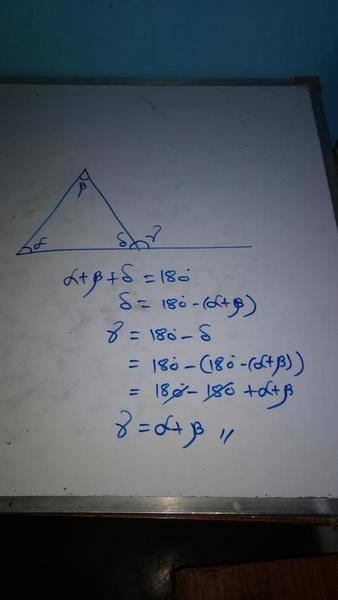 β
α δ γ
α+β+δ = 180°
δ = 180° - (α+β)
γ = 180° - δ
= 180° - (180° - (α+β))
= 180° - 180° + α+β
γ = α+β //